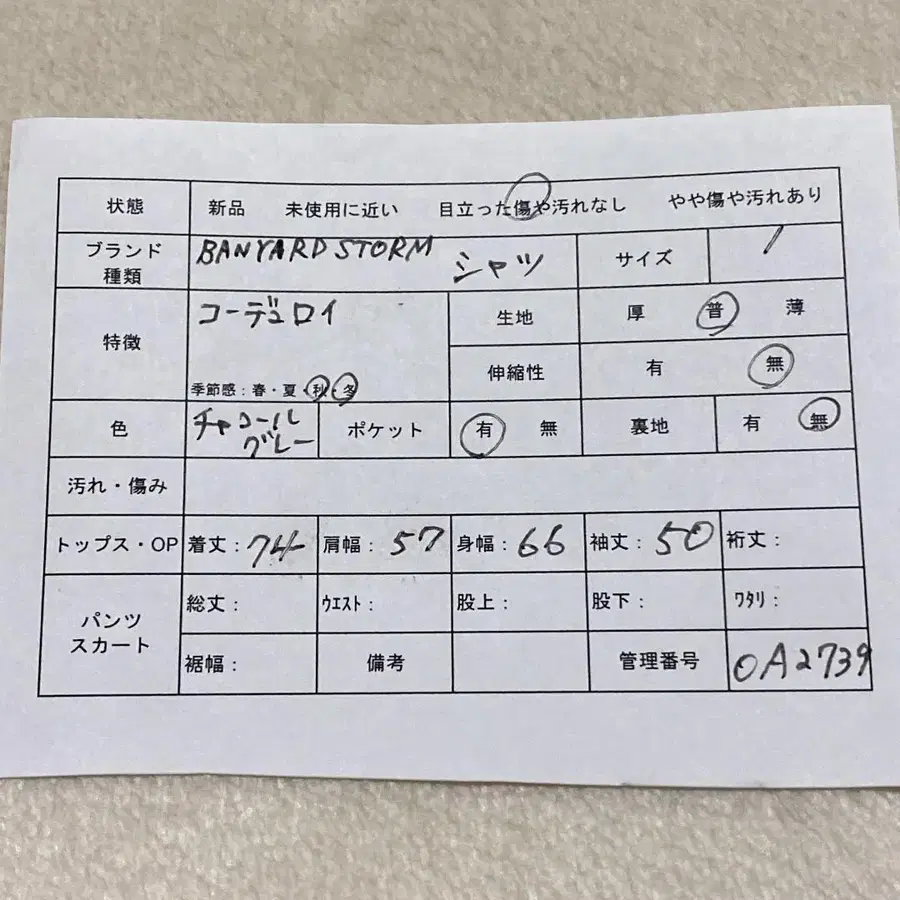 状態 新品 未使用に近い 目立った傷や汚れなし やや傷や汚れあり
ブランド 種類 BANYARD STORM シャツ サイズ 1
特徴 コーデュロイ 生地 厚 普 薄
季節感：春・夏・秋・冬 伸縮性 有 無
色 チャコールグレー ポケット 有 無 裏地 有 無
汚れ・傷み
トップス・OP 着丈：74 肩幅：57 身幅：66 袖丈：50 裄丈：
パンツ スカート 総丈： ウエスト： 股上： 股下： ワタリ：
裾幅： 備考 管理番号 OA2739